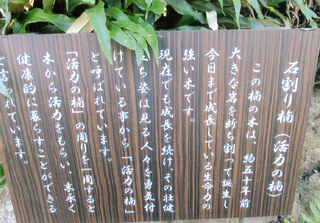 石割り楠（活力の楠）
この楠の木は、約五十年前
大きな岩を断ち割って誕生し
今日まで成長している生命力の
強い木です。
現在でも成長を続け、その壮健
な立ち姿は見る人々を勇気付
けている事から「活力の楠」
と呼ばれています。
「活力の楠」の周りを一周すると
木から活力をもらい、末永く
健康的に暮らすことができる
と言われています。